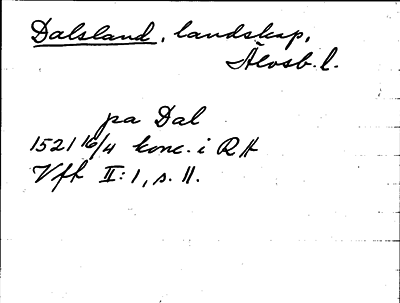 Dalsland, landskap,
Älvsb. l.
pa Dal
1521 16/4 konc. i RA
Vfh II: 1, s. 11.